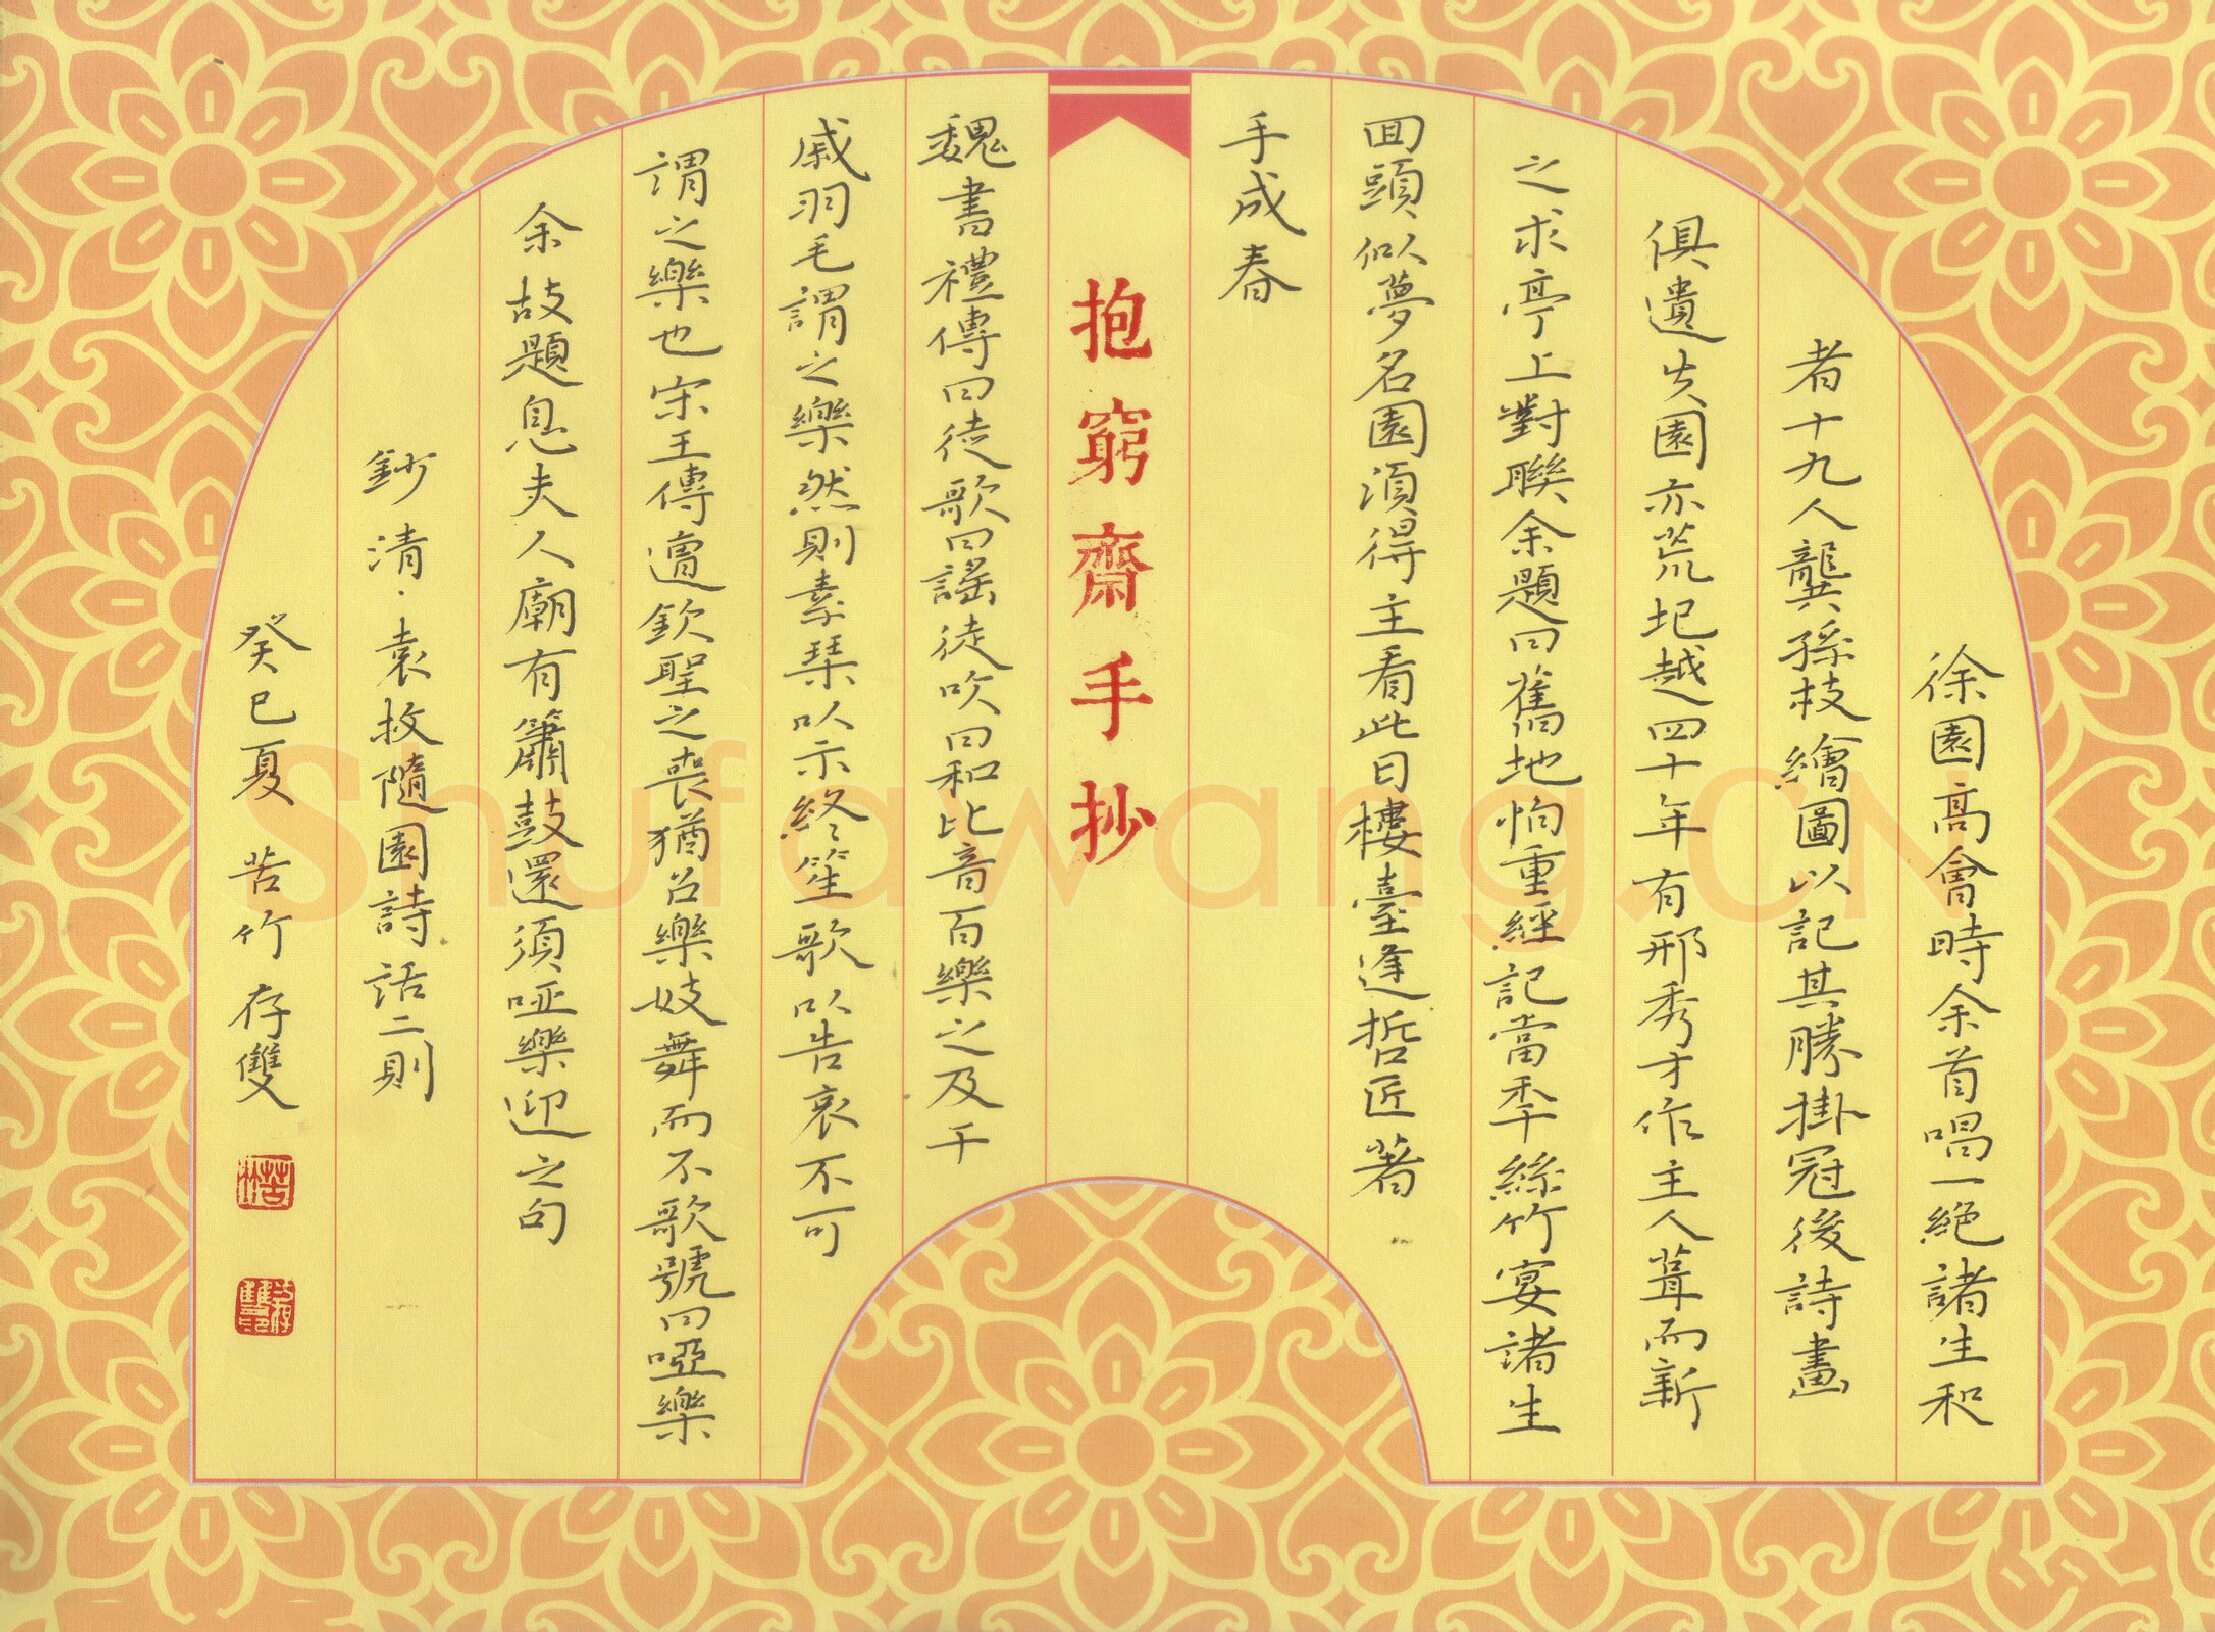 徐園高會時余首唱一絕諸生和
者十九人龔孫枝繪圖以記其勝掛冠後詩畫
俱遺失園亦荒圮越四十年有邢秀才作主人葺而新
之求亭上對聯余題曰舊地怕重經記當年絲竹宴諸生
回頭似夢名園須得主看此日樓臺逢哲匠著
手成春
抱窮齋手抄
魏書禮傳曰徒歌曰謠徒吹曰和比音百樂之及干
戚羽毛謂之樂然則素琴以示終笙歌以告哀不可
謂之樂也宋王傳遭欽聖之喪猶召樂妓舞而不歌號曰啞樂
余故題息夫人廟有簫鼓還須啞樂迎之句
鈔清·袁枚隨園詩話二則
癸巳夏 苦竹存雙
Shufawang.CN